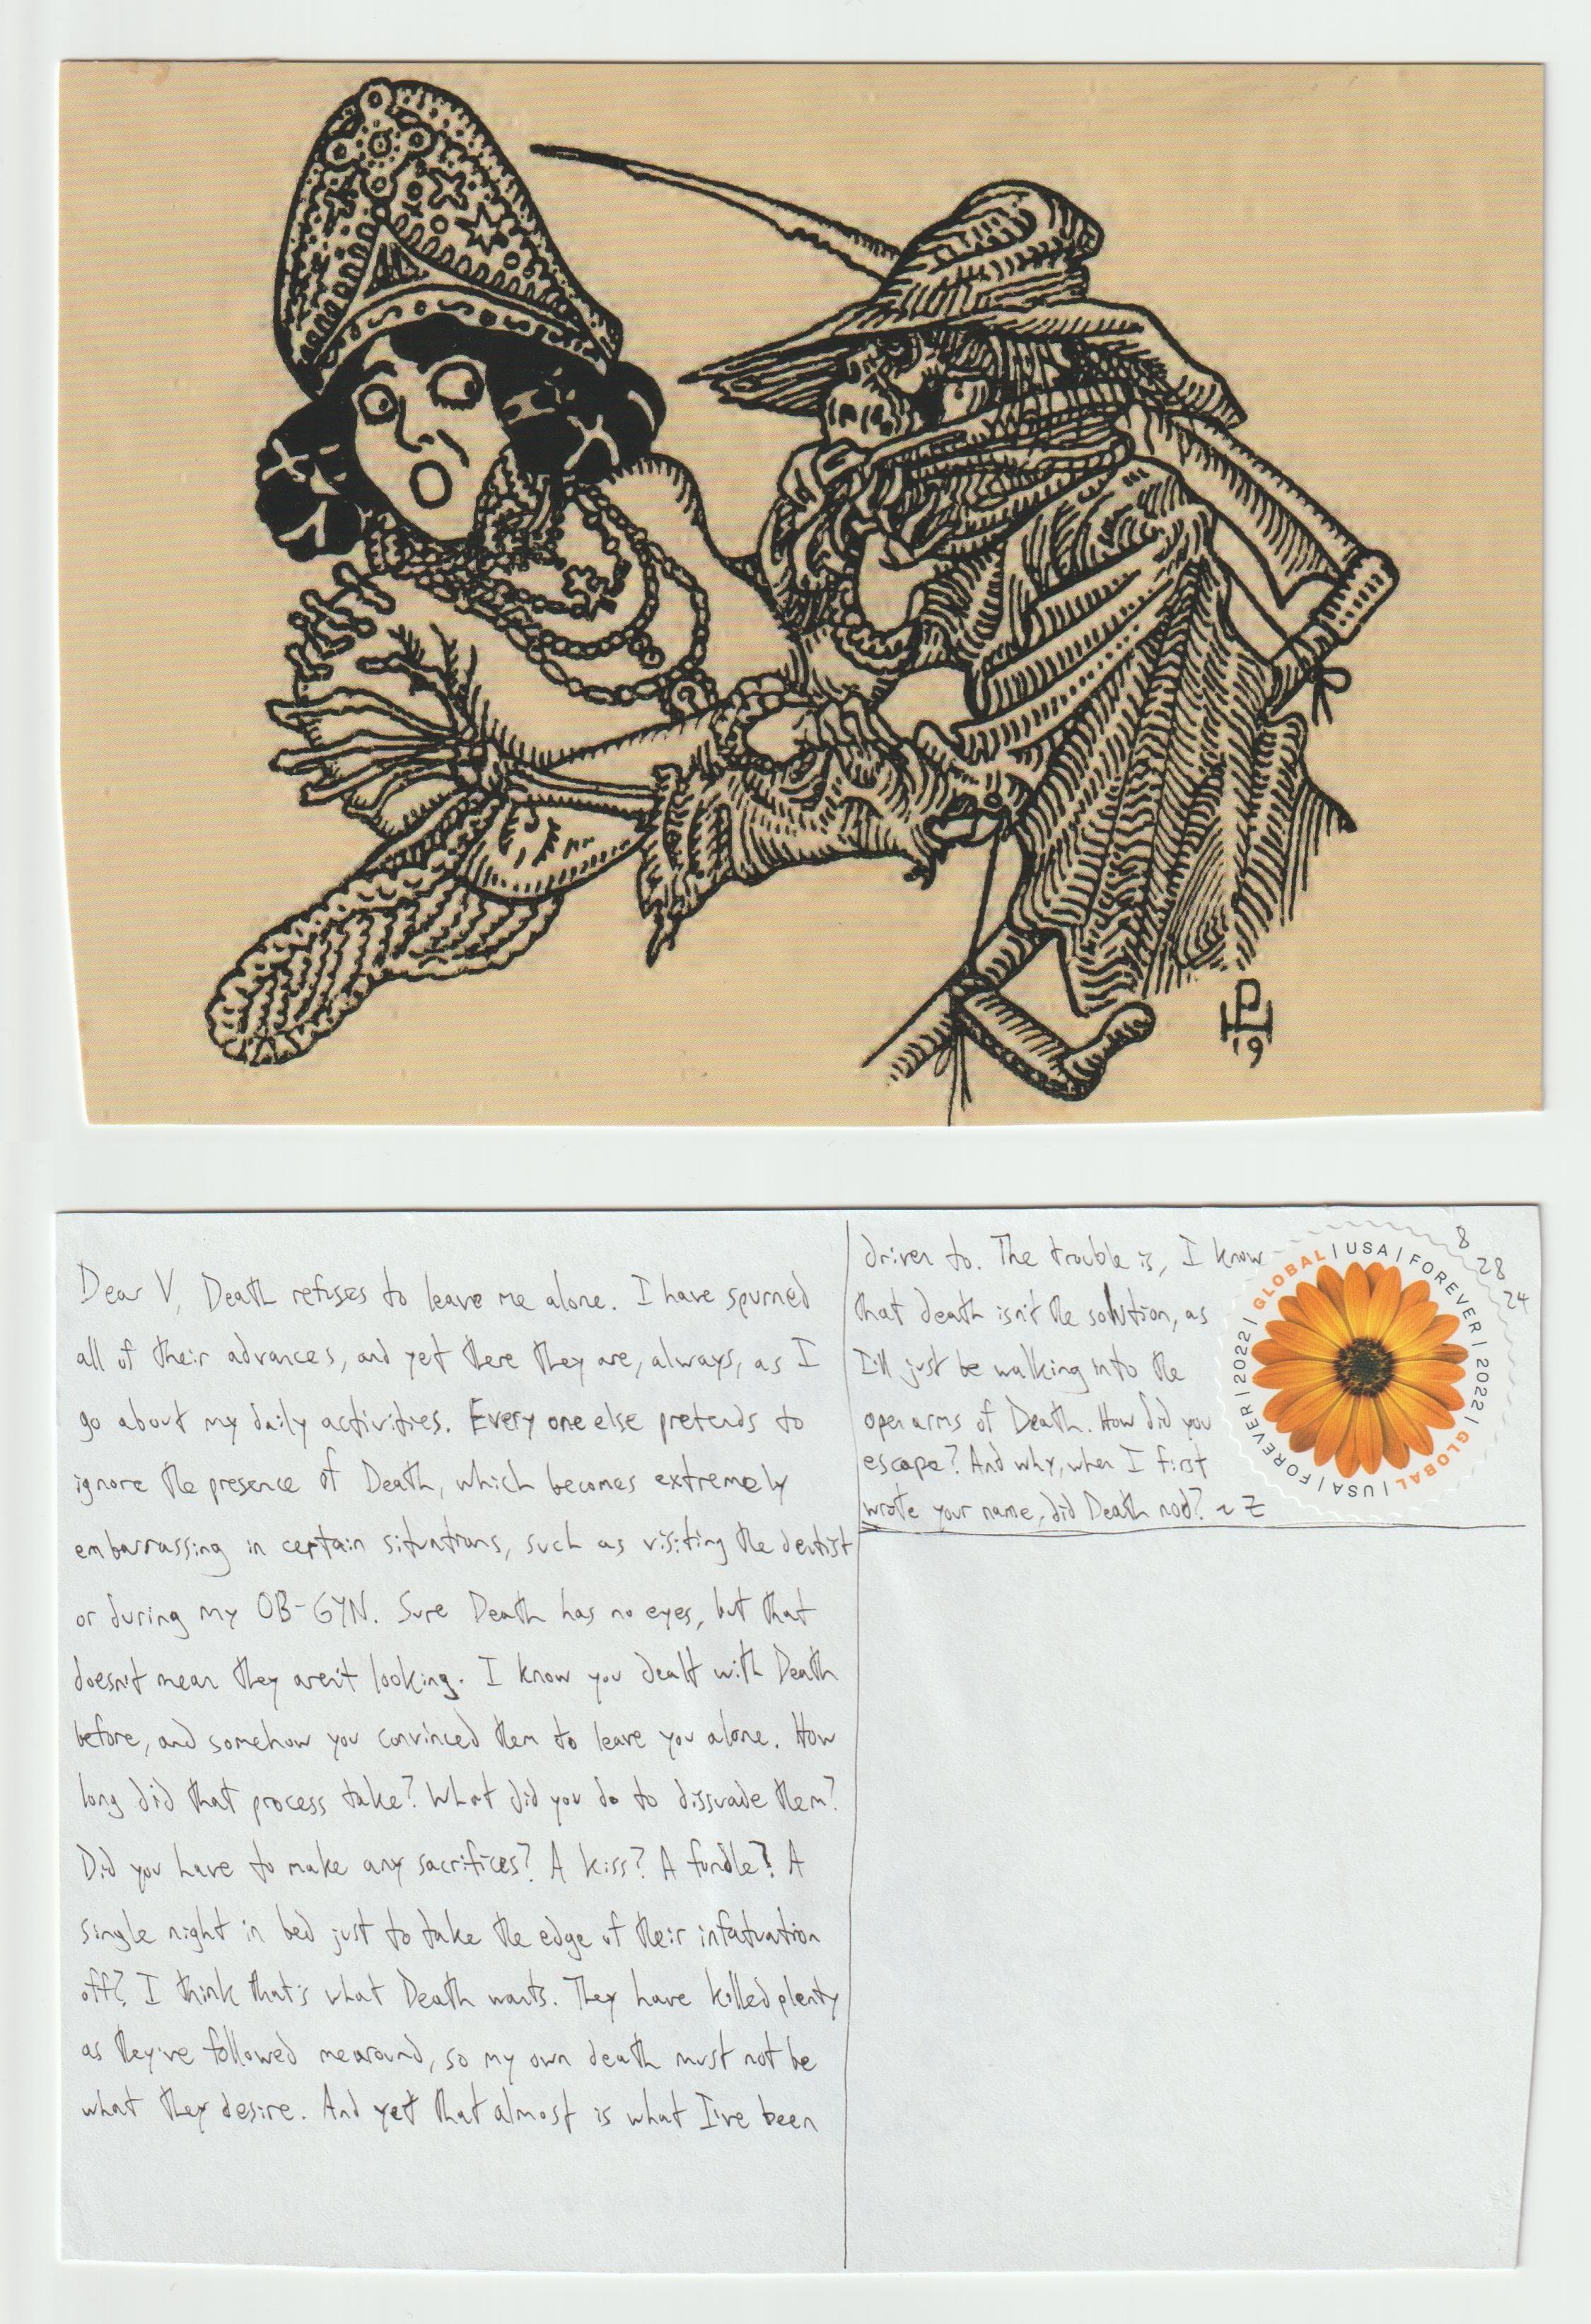 PL
'19
Dear V, Death refuses to leave me alone. I have spurned
all of their advances, and yet there they are, always, as I
go about my daily activities. Everyone else pretends to
ignore the presence of Death, which becomes extremely
embarrassing in certain situations, such as visiting the dentist
or during my OB-GYN. Sure Death has no eyes, but that
doesn't mean they aren't looking. I know you dealt with Death
before, and somehow you convinced them to leave you alone. How
long did that process take? What did you do to dissuade them?
Did you have to make any sacrifices? A kiss? A fondle? A
single night in bed just to take the edge of their infatuation
off? I think that's what Death wants. They have killed plenty
as they've followed me around, so my own death must not be
what they desire. And yet that almost is what I've been
driven to. The trouble is, I know
that death isn't the solution, as
I'll just be walking into the
open arms of Death. How did you
escape? And why, when I first
wrote your name, did Death nod? ~ Z
GLOBAL | USA | FOREVER | 2022 | GLOBAL | USA | FOREVER | 2022 |
8
28
24